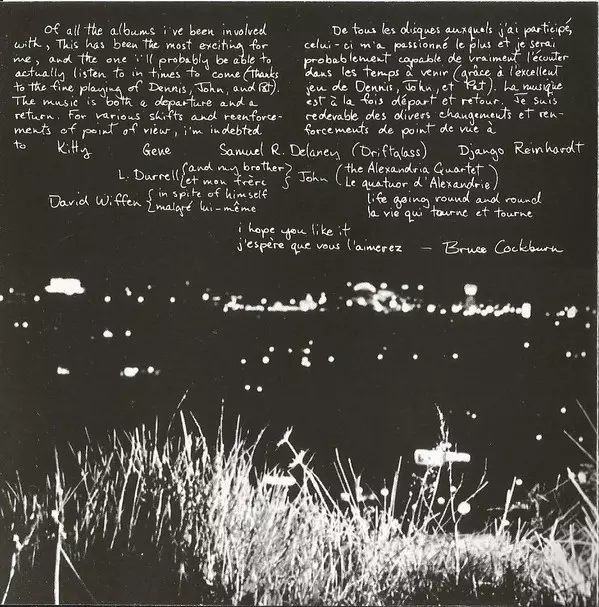 Of all the albums i've been involved
with, This has been the most exciting for
me, and the one i'll probably be able to
actually listen to in times to come (Thanks
to the fine playing of Dennis, John, and Pat).
The music is both a departure and a
return. For various shifts and reenforce-
ments of point of view, i'm indebted
to
De tous les disques auxquels j'ai participé,
celui-ci m'a passionné le plus et je serai
probablement capable de vraiment l'écouter
dans les temps à venir (grâce à l'excellent
jeu de Dennis, John, et Pat). La musique
est à la fois départ et retour. Je suis
redevable des divers changements et ren-
forcements de point de vue à
Kitty Gene Samuel R. Delaney (Driftglass) Django Reinhardt
L. Durrell {and my brother / et mon frère} John (the Alexandria Quartet / Le quatuor d'Alexandrie)
David Wiffen {in spite of himself / malgré lui-même
life going round and round
la vie qui tourne et tourne
i hope you like it
j'espère que vous l'aimerez — Bruce Cockburn